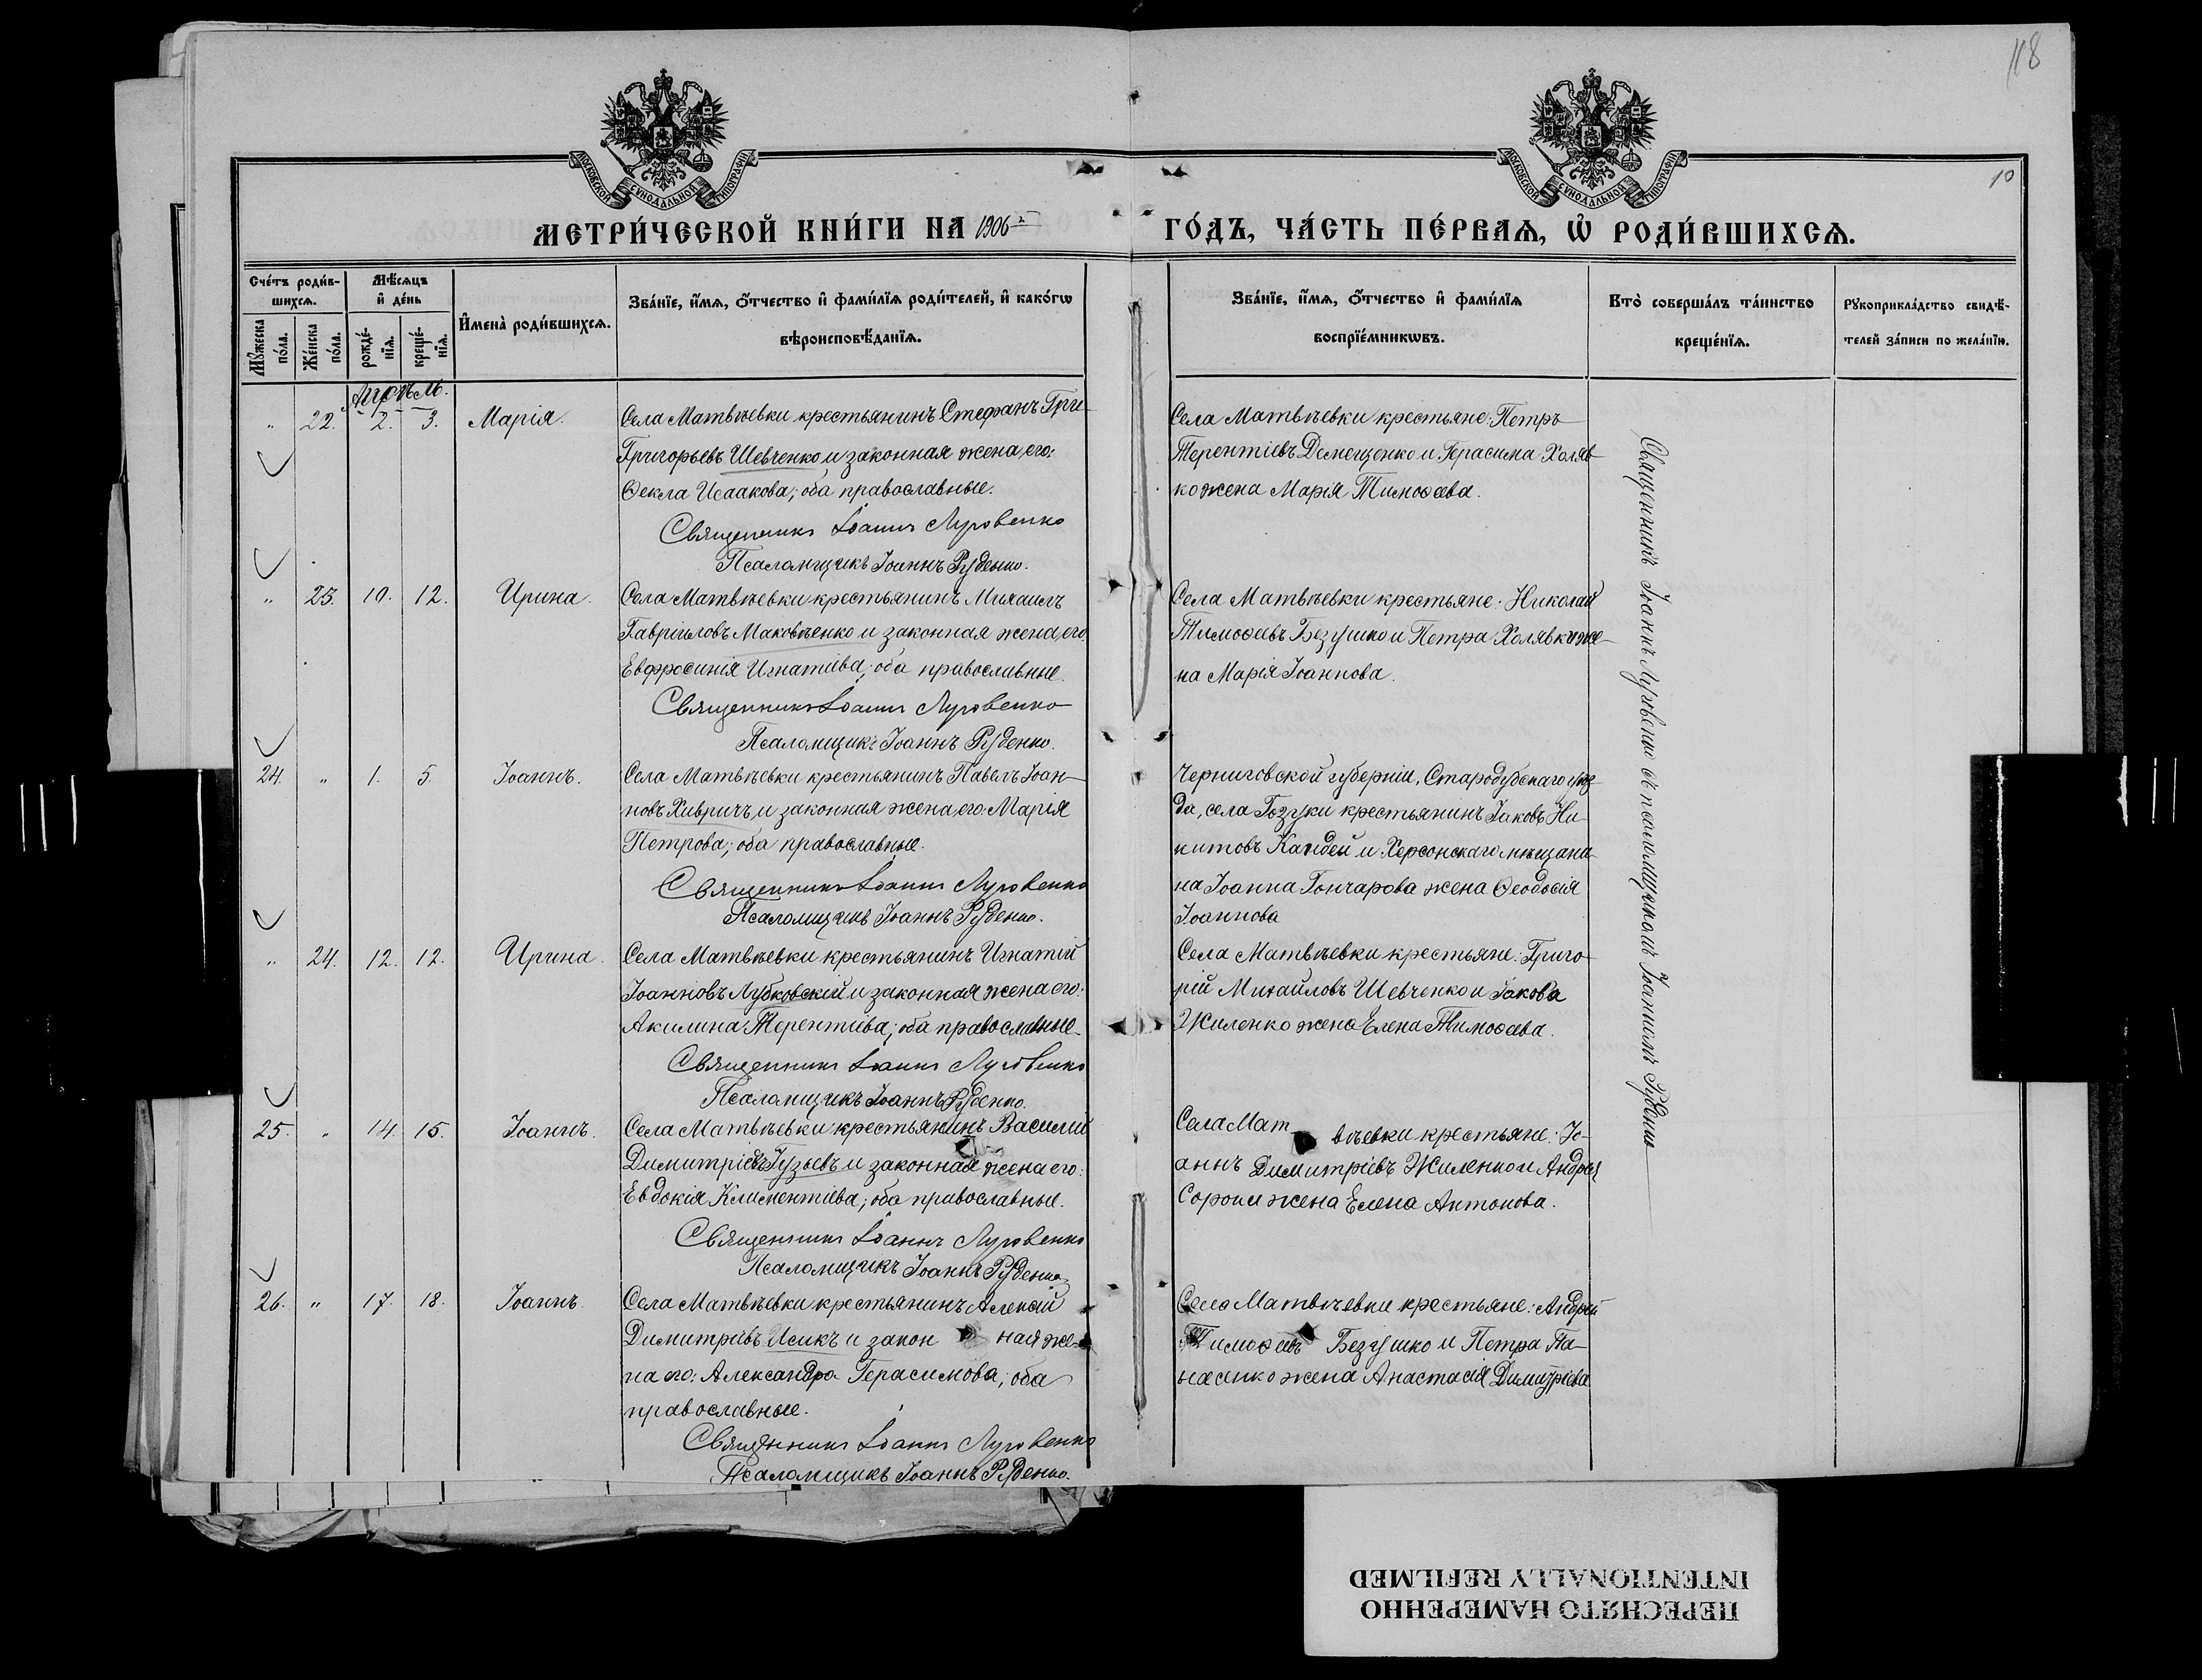 118
МОСКОВСКОЙ СУНОДАЛЬНОЙ ТИПОГРАФІИ
МОСКОВСКОЙ СУНОДАЛЬНОЙ ТИПОГРАФІИ
10
МЕТРИ́ЧЕСКОЙ КНИ́ГИ НА 1906 й
ГО́ДЪ, ЧА́СТЬ ПЕ́РВАѦ, Ѡ҆ РОДИ́ВШИХСѦ.
Сче́тъ роди́в-
шихсѧ.
Мꙋ́жеска
по́ла.
Же́нска
по́ла.
Мѣ́сѧцъ
и҆ де́нь
рожде́-
нїѧ.
креще́-
нїѧ.
И҆мена̀ роди́вшихсѧ.
Зва́нїе, и҆́мѧ, ѻ҆́тчество и҆ фами́лїѧ роди́телей, и҆ како́гѡ
вѣроисповѣ́данїѧ.
Зва́нїе, и҆́мѧ, ѻ҆́тчество и҆ фами́лїѧ
воспрїе́мникѡвъ.
Кто̀ соверша́лъ та́инство
креще́нїѧ.
Рꙋкоприкла́дство свидѣ́-
телей за́писи по жела́нїю.
Апрѣль.
" 22. 2. 3. Марія.
Села Матвѣевки крестьянинъ Стефанъ Гри-
Григорьевъ Шевченко и законная жена его:
Ѳекла Исаакова; оба православные.
Священникъ Іоаннъ Луговенко
Псаломщикъ Іоаннъ Руденко.
Села Матвѣевки крестьяне: Петръ
Терентіевъ Демещенко и Герасима Холяв-
ко жена Марія Тимоѳеева.
" 23. 10. 12. Ирина.
Села Матвѣевки крестьянинъ Михаилъ
Гавріиловъ Маковѣенко и законная жена его:
Евфросинія Игнатіева; оба православные.
Священникъ Іоаннъ Луговенко
Псаломщикъ Іоаннъ Руденко.
Села Матвѣевки крестьяне: Николай
Тимоѳеевъ Безушко и Петра Холявки же-
на Марія Іоаннова.
24. " 1. 5. Іоаннъ.
Села Матвѣевки крестьянинъ Павелъ Іоан-
новъ Хивричъ и законная жена его: Марія
Петрова; оба православные.
Священникъ Іоаннъ Луговенко
Псаломщикъ Іоаннъ Руденко.
Черниговской губерніи, Стародубскаго уѣз-
да, села крестьянинъ Іаковъ Ни-
китовъ и Херсонскаго мѣщани-
на Іоанна Гончарова жена Ѳеодосія
Іоаннова
" 24. 12. 12. Ирина.
Села Матвѣевки крестьянинъ Игнатій
Іоанновъ Лубковскій и законная жена его:
Акилина Терентіева; оба православные.
Священникъ Іоаннъ Луговенко
Псаломщикъ Іоаннъ Руденко.
Села Матвѣевки крестьяне: Григо-
рій Михайловъ Шевченко и Іакова
Жиленко жена Елена Тимоѳеева.
25. " 14. 15. Іоаннъ.
Села Матвѣевки крестьянинъ Василій
Димитріевъ Гузьевъ и законная жена его:
Евдокія Климентіева; оба православные.
Священникъ Іоаннъ Луговенко
Псаломщикъ Іоаннъ Руденко.
Села Матвѣевки крестьяне: Іо-
аннъ Димитріевъ Жиленко и Андрея
Сороки жена Елена Антонова.
26. " 17. 18. Іоаннъ.
Села Матвѣевки крестьянинъ Алексій
Димитріевъ Исикъ и законная же-
на его: Александра Герасимова; оба
православные.
Священникъ Іоаннъ Луговенко
Псаломщикъ Іоаннъ Руденко.
Села Матвѣевки крестьяне: Андрей
Тимоѳеевъ Безушко и Петра Па-
насенко жена Анастасія Димитріева
Священникъ Іоаннъ Луговенко съ псаломщикомъ Іоанномъ Руденко
ПЕРЕСНЯТО НАМЕРЕННО
INTENTIONALLY REFILMED